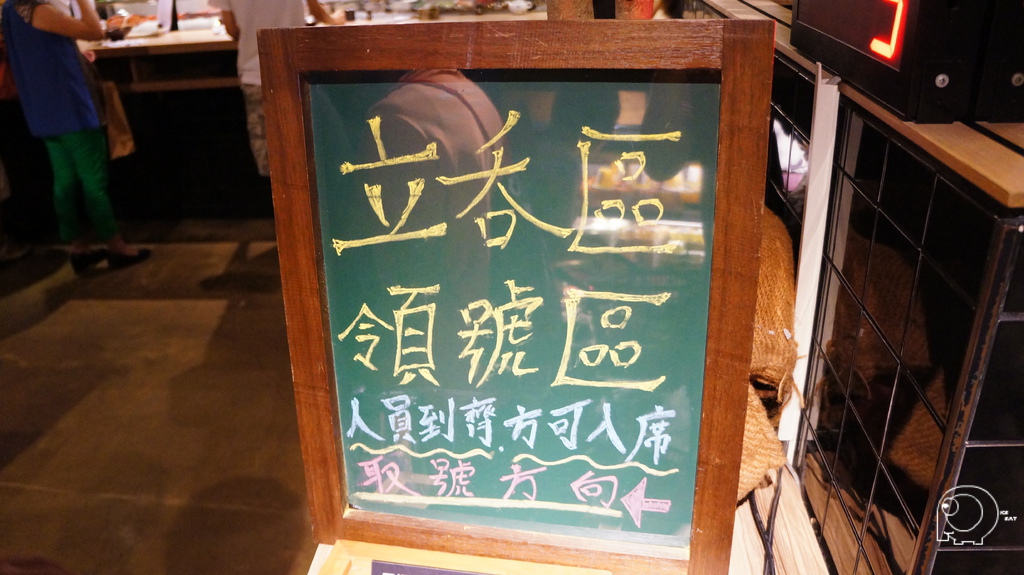 立吞區
領號區
人員到齊.方可入席
取號方向←
ICE
EAT